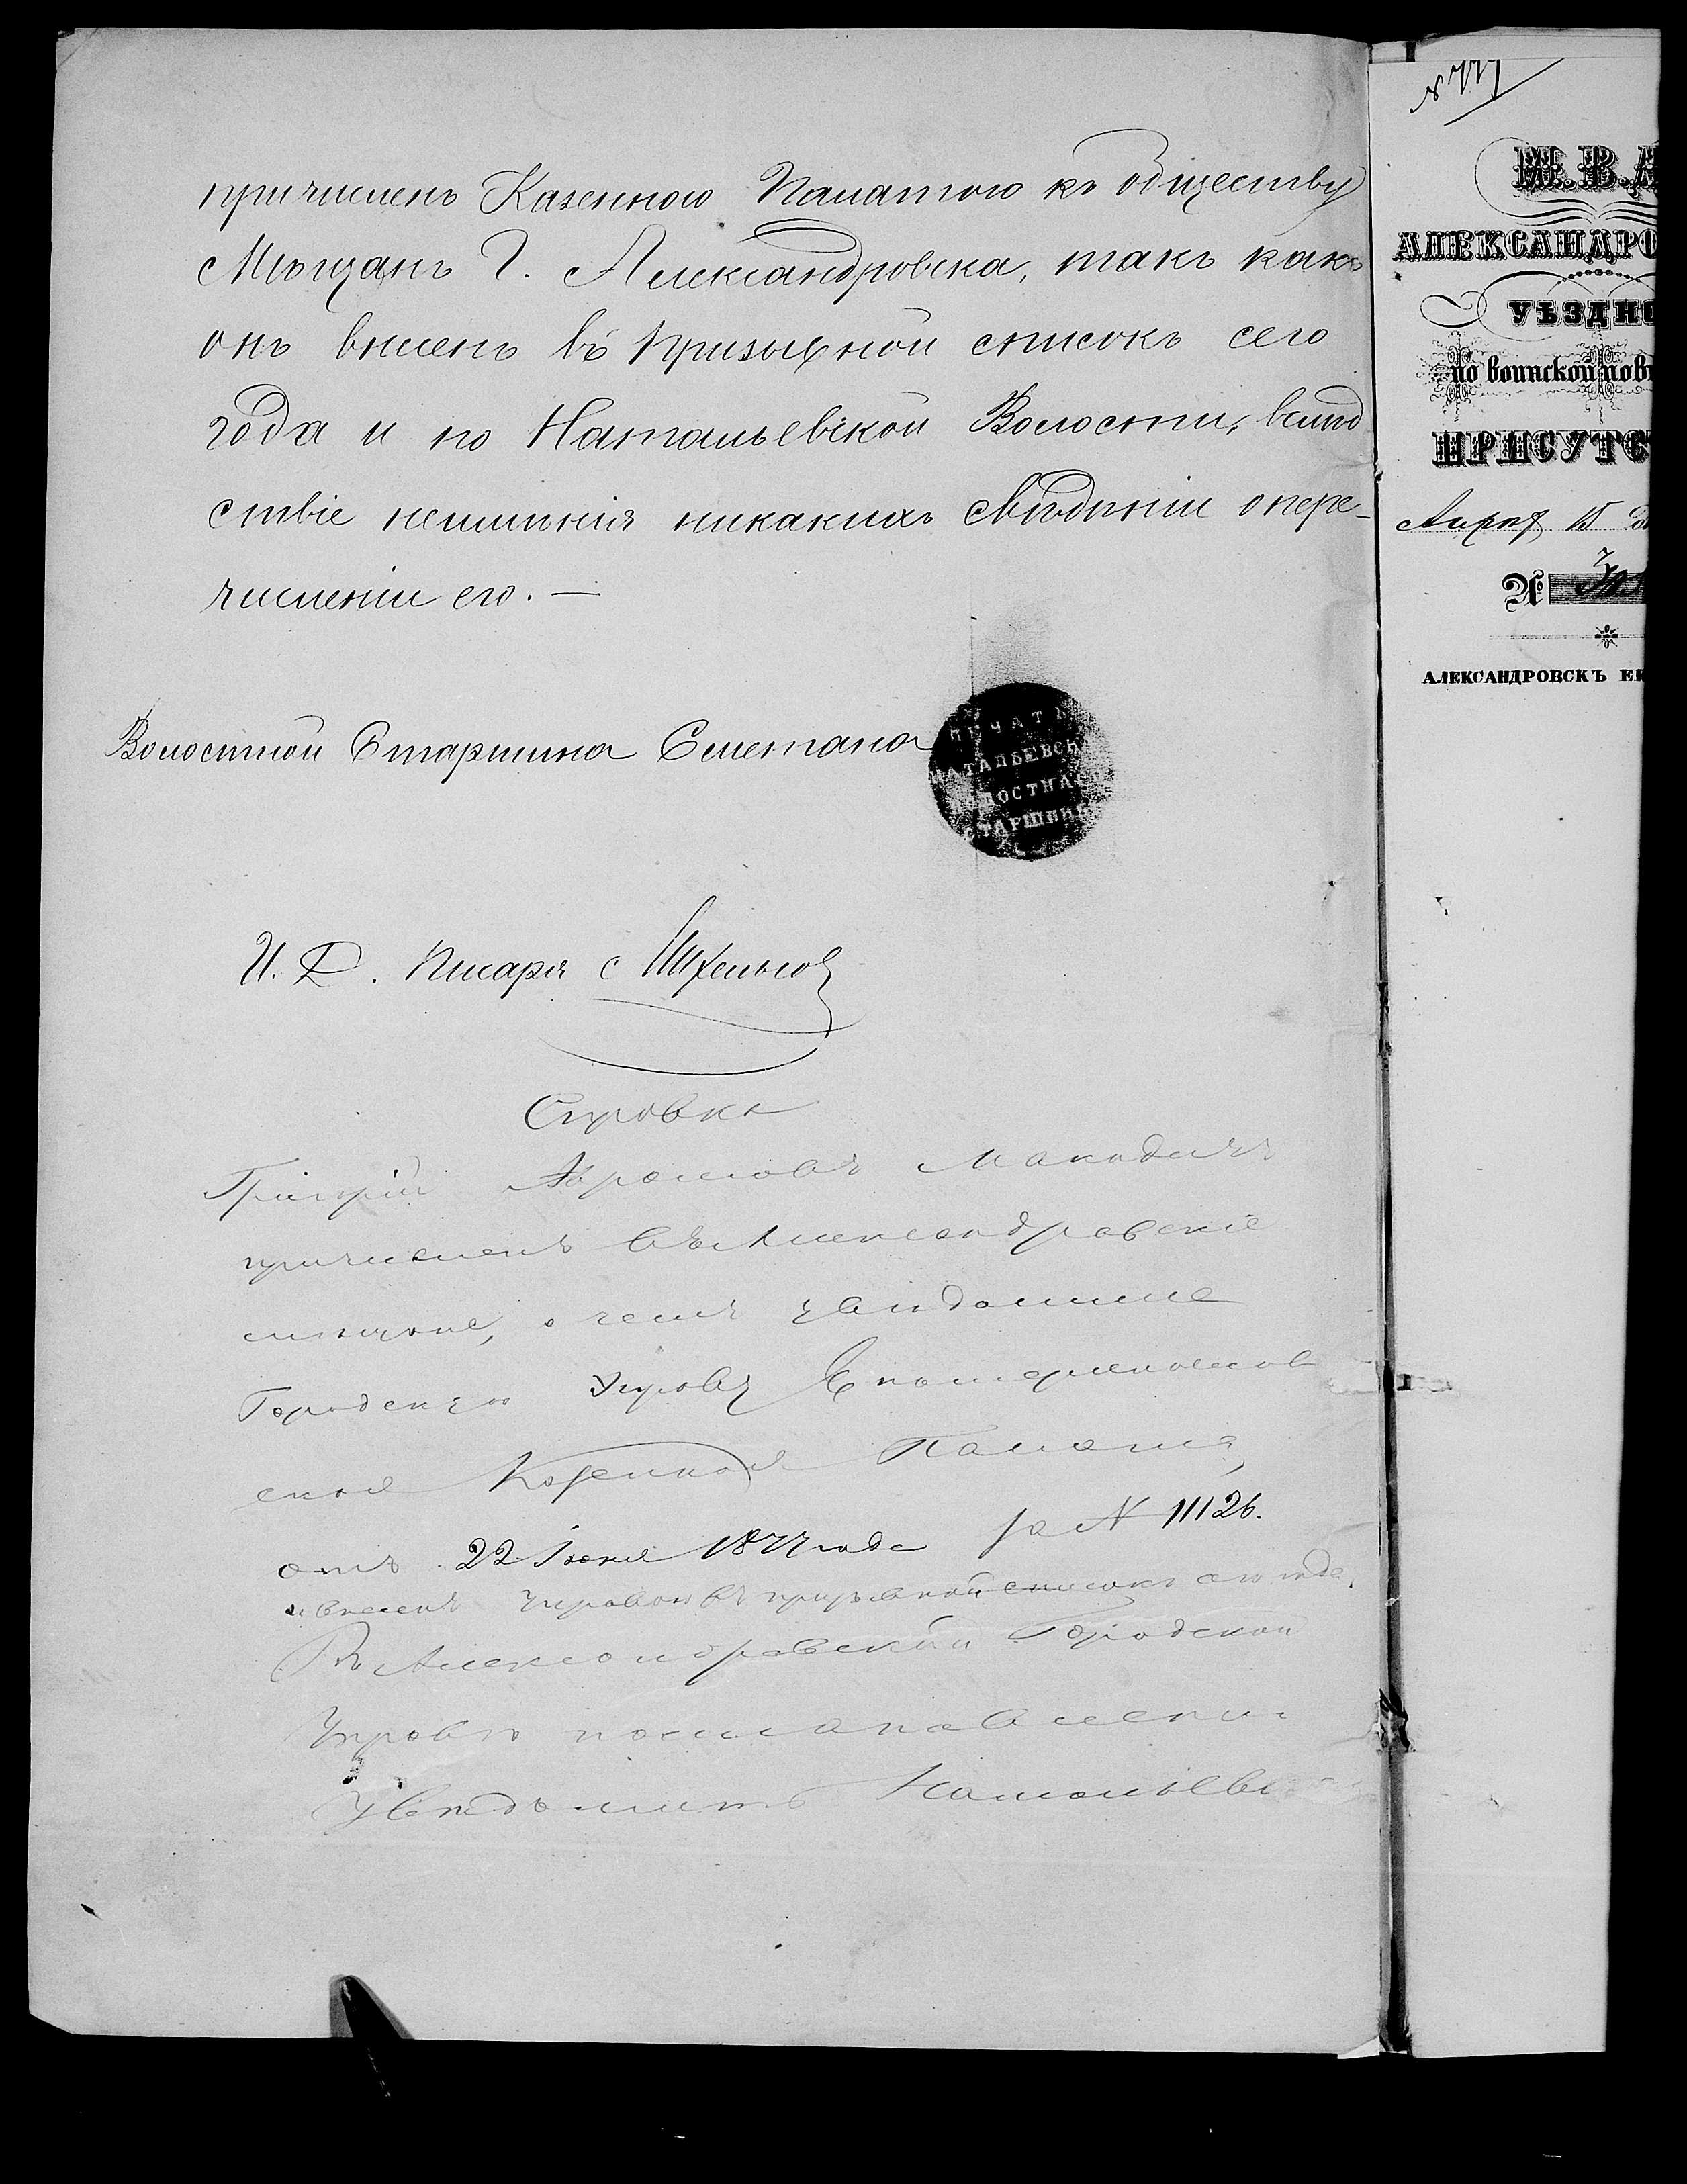 причисленъ Казенною Палатою къ обществу
Мѣщанъ Г. Александровска, такъ какъ
онъ внесенъ въ призывной списокъ сего
года и по Натальевской Волости, вслѣд
ствіе неимѣнія никакихъ свѣдѣніи опере-
численіи его. —
Волостной Старшина Сметана
ПЕЧАТЬ
НАТАЛЬЕВСК
ЛОСТНА
СТАРШИН
И. Д. Писаря
Справка
Григорій Аврамовъ
причисленъ въ Александровскіе
мѣщане, о чемъ увѣдомила
Городскую Управу Екатеринослав
ская Казенная Палата,
отъ 22 Іюня 1877 года за N 11126.
и внесенъ Управою въ призывной списокъ сего года.
Въ Александровской Городской
Управѣ постановлено:
Увѣдомить Натальевс
М.В.Д
АЛЕКСАНДРО
УѢЗДНО
по воинской пов
ПРИСУТС
15
№
АЛЕКСАНДРОВСКЪ ЕК